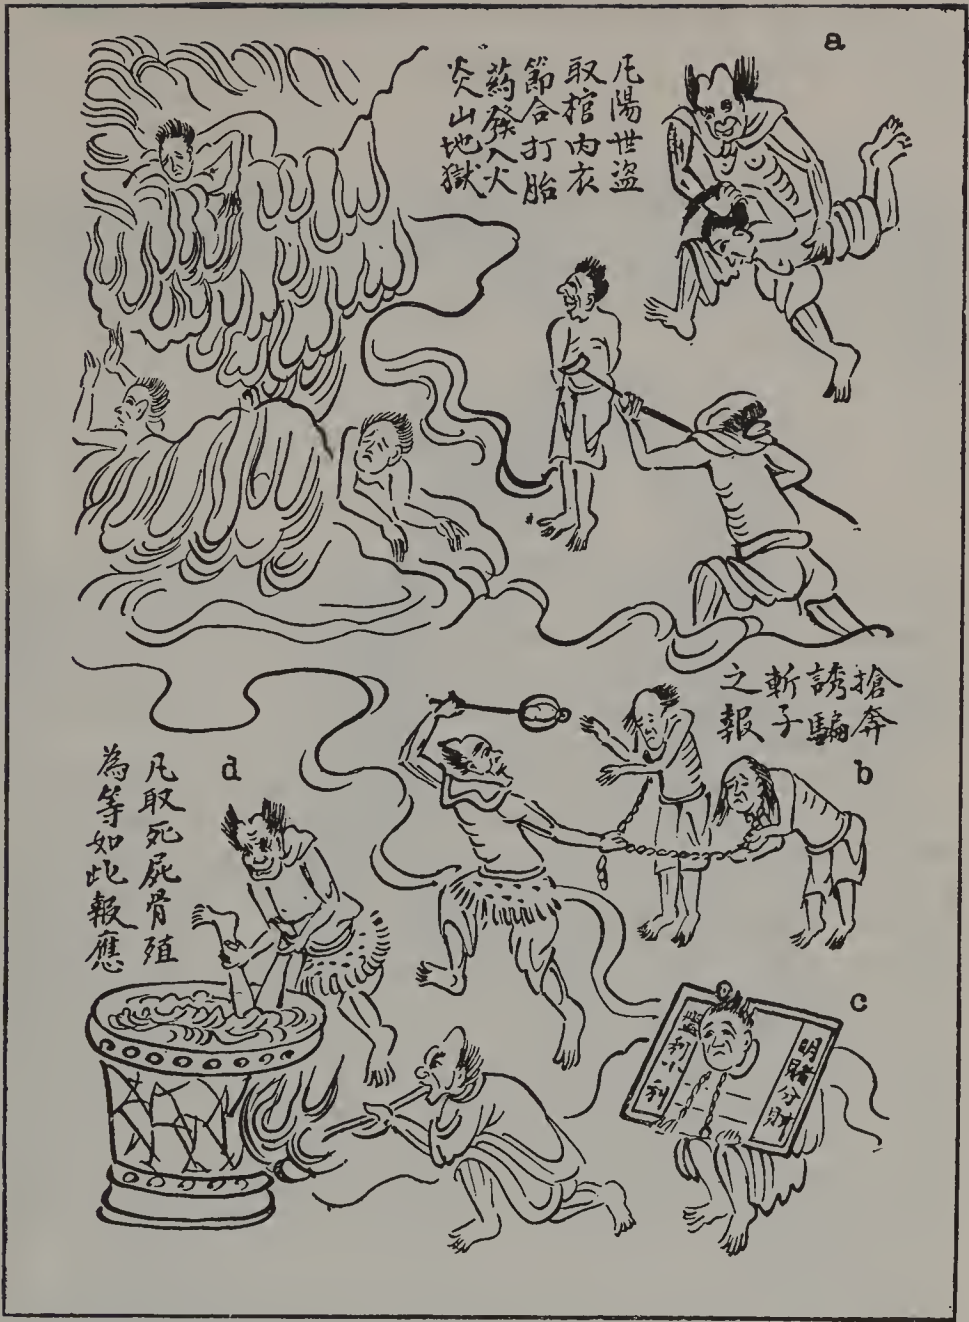 a
凡陽世盜
取棺內衣
節合打胎
葯發入火
炎山地獄
搶奔
誘騙
斬子
之報
b
d
凡取死屍骨殖
為等如此報應
c
明賭分財
利小利